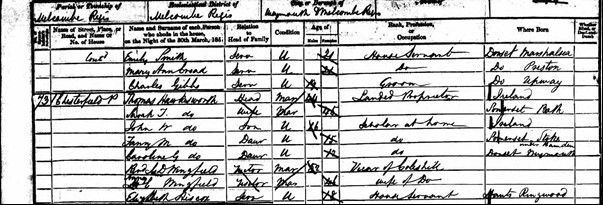 Parish or Township of Ecclesiastical District of City or Borough of
Melcombe Regis Melcombe Regis Weymouth & Melcombe Regis
Name of Street, Place, or Road, and Name or No. of House Name and Surname of each Person who abode in the house, on the Night of the 30th March, 1851 Relation to Head of Family Condition Age of Males Females Rank, Profession, or Occupation Where Born Whether Deaf-and-Dumb
Emily Smith Serv U 21 House Servant Dorset Marshalsea
Mary Ann Serv U Do Do Preston
Charles Gibbs Serv U Groom Do Upway
73 Chesterfield P Thomas Hawksworth Head Mar Landed Proprietor Ireland
Sarah J. do Wife Mar Somerset Bath
John W do Son U 16 Scholar at home Ireland
Fanny M do Daur U 15 do Somerset Stoke under Hamden
Caroline G do Daur U do Dorset Weymouth
Wingfield Visitor Mar Vicar of Coleshill
Wingfield Visitor Mar Wife of Do
Elizabeth Hiscock Serv U House Servant Hants Ringwood